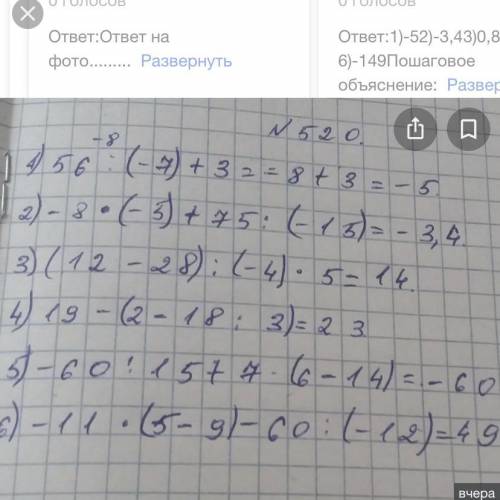 0 голосов
Ответ:Ответ на
фото......... Развернуть
0 голосов
Ответ:1)-52)-3,43)0,8
6)-149Пошаговое
объяснение: Развер
№ 520.
-8
1) 56 : (-7) + 3 = = 8 + 3 = - 5.
2) - 8 • (-5) + 75 : (-15) = - 3,4.
3) (12 - 28) : (-4) · 5 = 14.
4) 19 - (2 - 18 : 3) = 23
5) - 60 : 15 + 7 · (6 - 14) = - 60
6) - 11 • (5 - 9) - 60 : (-12) = 49
вчера